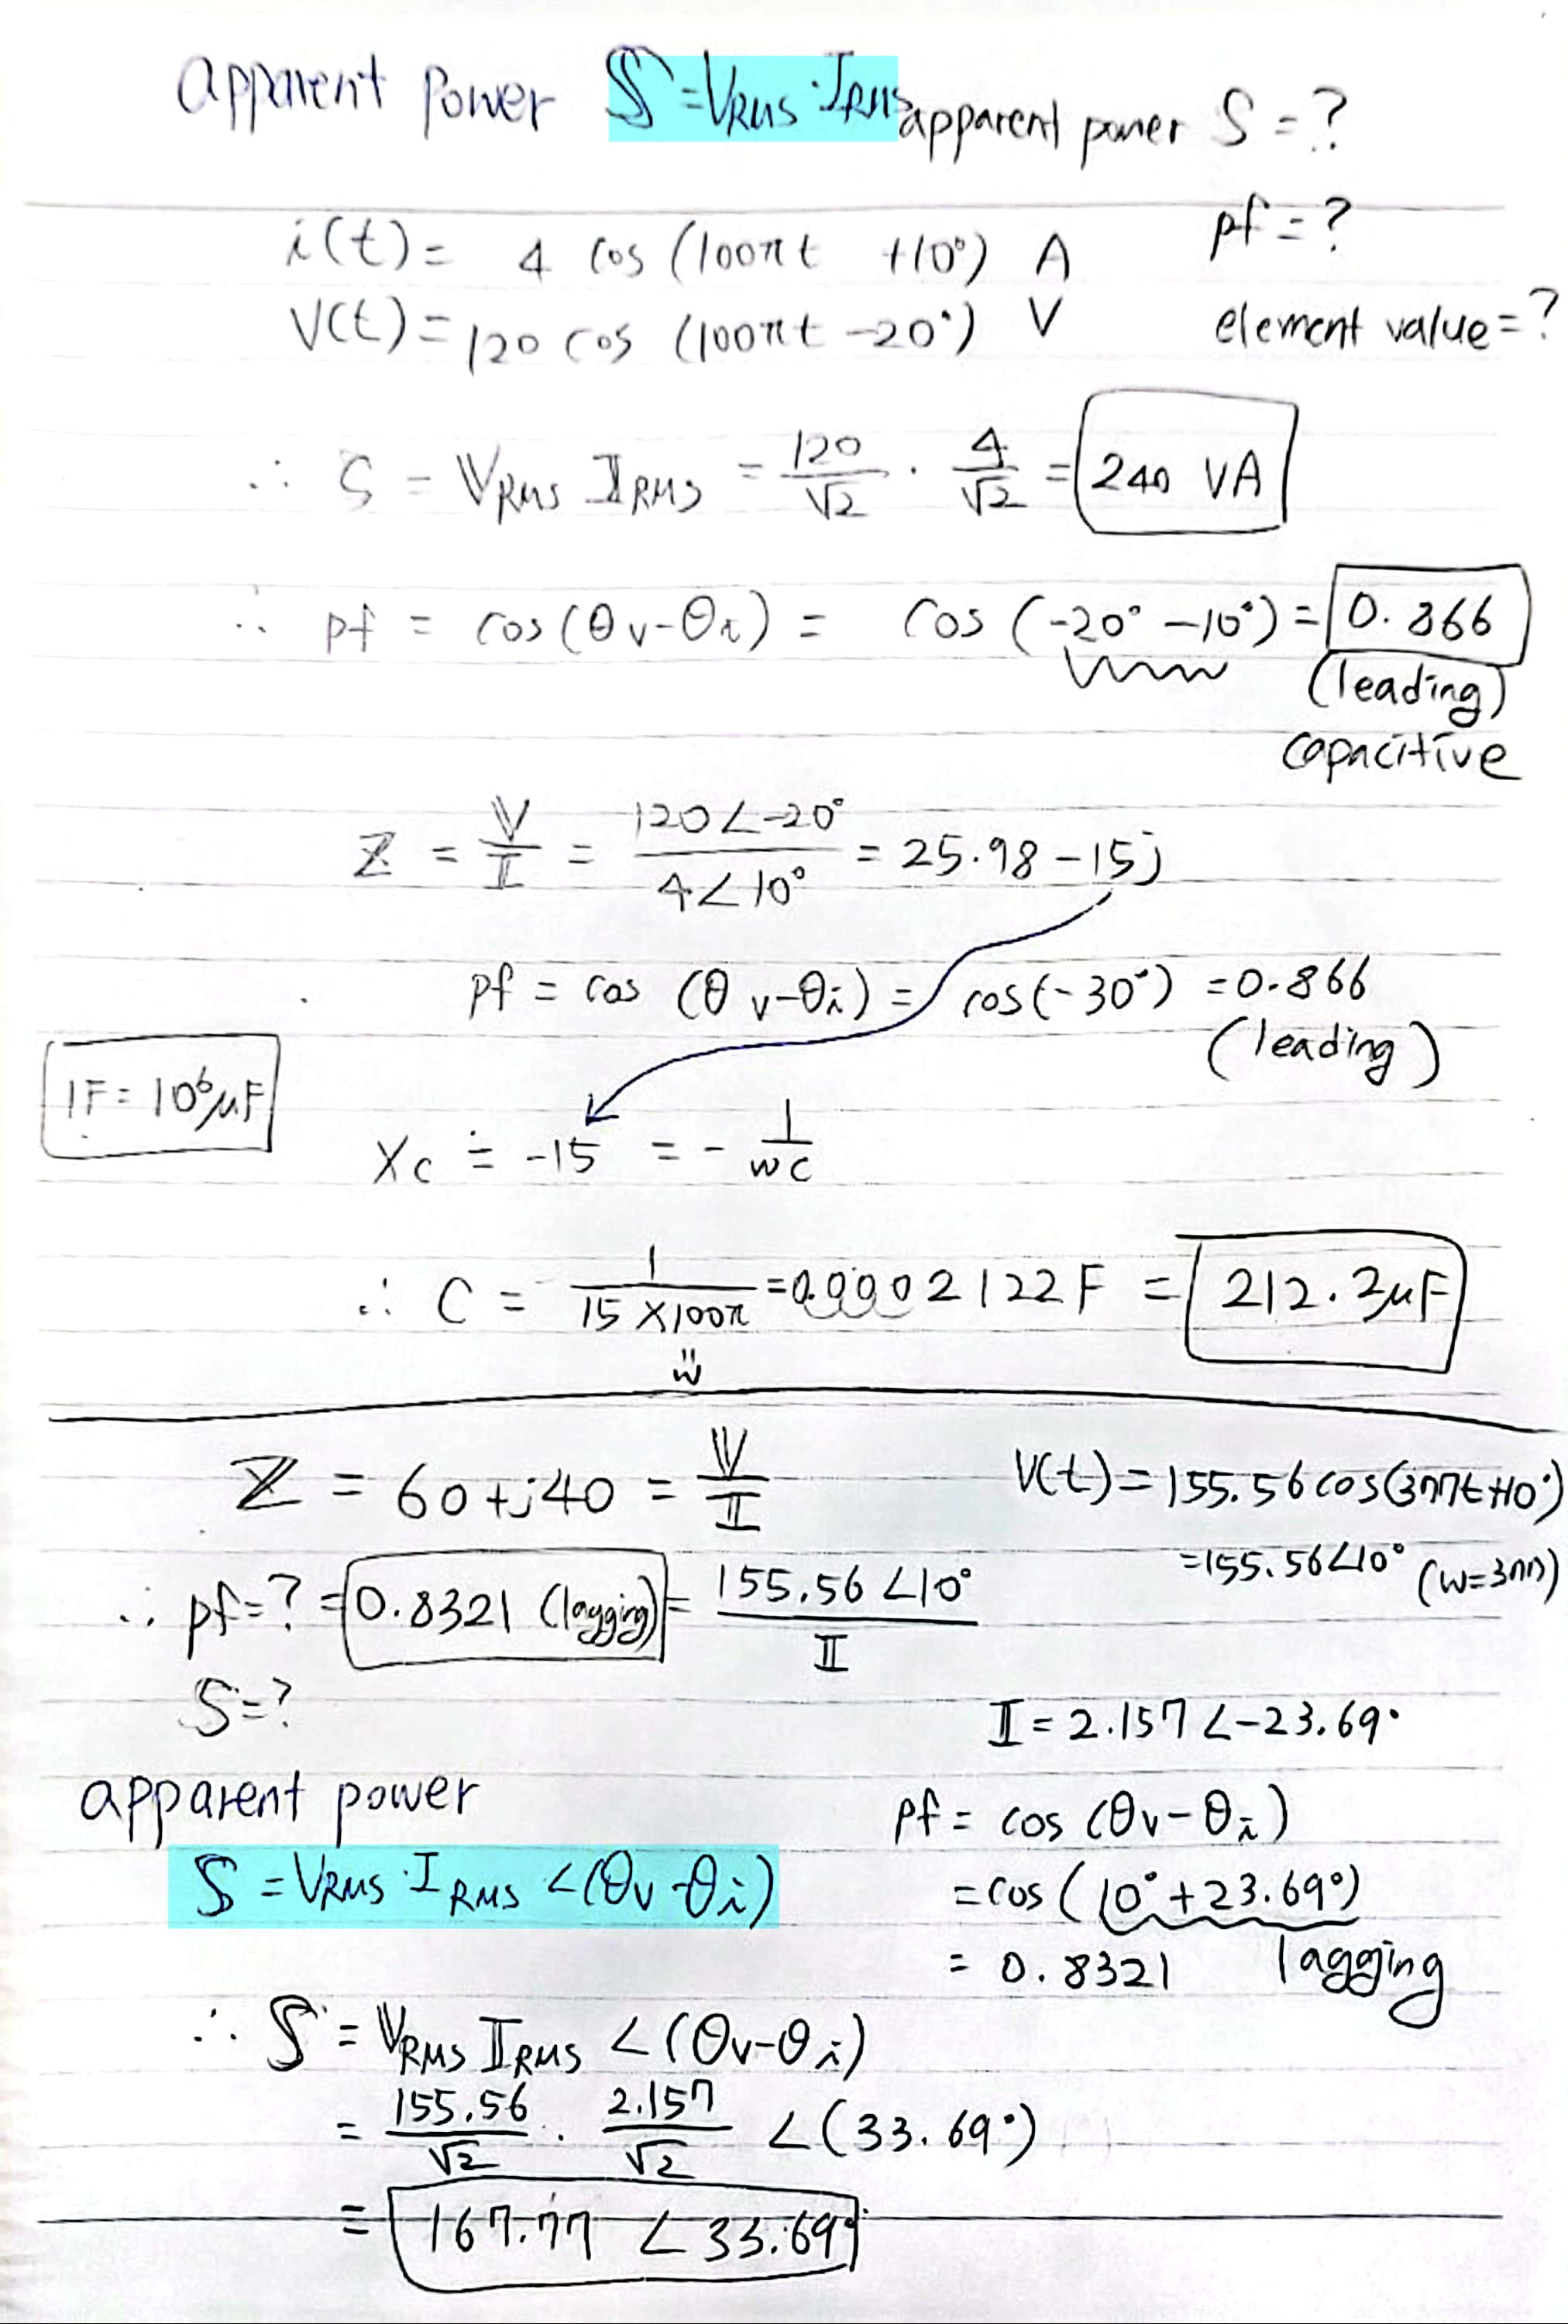 apparent power 𝕊 = V_RMS · I_RMS apparent power S = ?
i(t) = 4 cos (100πt +10°) A pf = ?
V(t) = 120 cos (100πt -20°) V element value = ?
∴ S = 𝕍_RMS 𝕀_RMS = 120/√2 · 4/√2 = 240 VA
∴ pf = cos(θv-θi) = cos (-20° -10°) = 0.866
(leading)
capacitive
Z = 𝕍/𝕀 = 120∠-20° / 4∠10° = 25.98 - 15j
pf = cos (θv-θi) = cos(-30°) = 0.866
(leading)
1F = 10⁶μF
Xc = -15 = - 1/wc
∴ C = 1/(15×100π) = 0.0002122F = 212.2μF
w
ℤ = 60+j40 = 𝕍/𝕀 V(t) = 155.56 cos(377t+10°)
= 155.56∠10° (w=377)
∴ pf = ? = 0.8321 (lagging) = 155.56∠10° / 𝕀
S = ?
𝕀 = 2.157∠-23.69°
apparent power
pf = cos (θv-θi)
𝕊 = V_RMS · I_RMS ∠(θv-θi)
= cos (10°+23.69°)
= 0.8321 lagging
∴ 𝕊 = 𝕍_RMS 𝕀_RMS ∠(θv-θi)
= 155.56/√2 · 2.157/√2 ∠(33.69°)
= 167.77 ∠33.69°